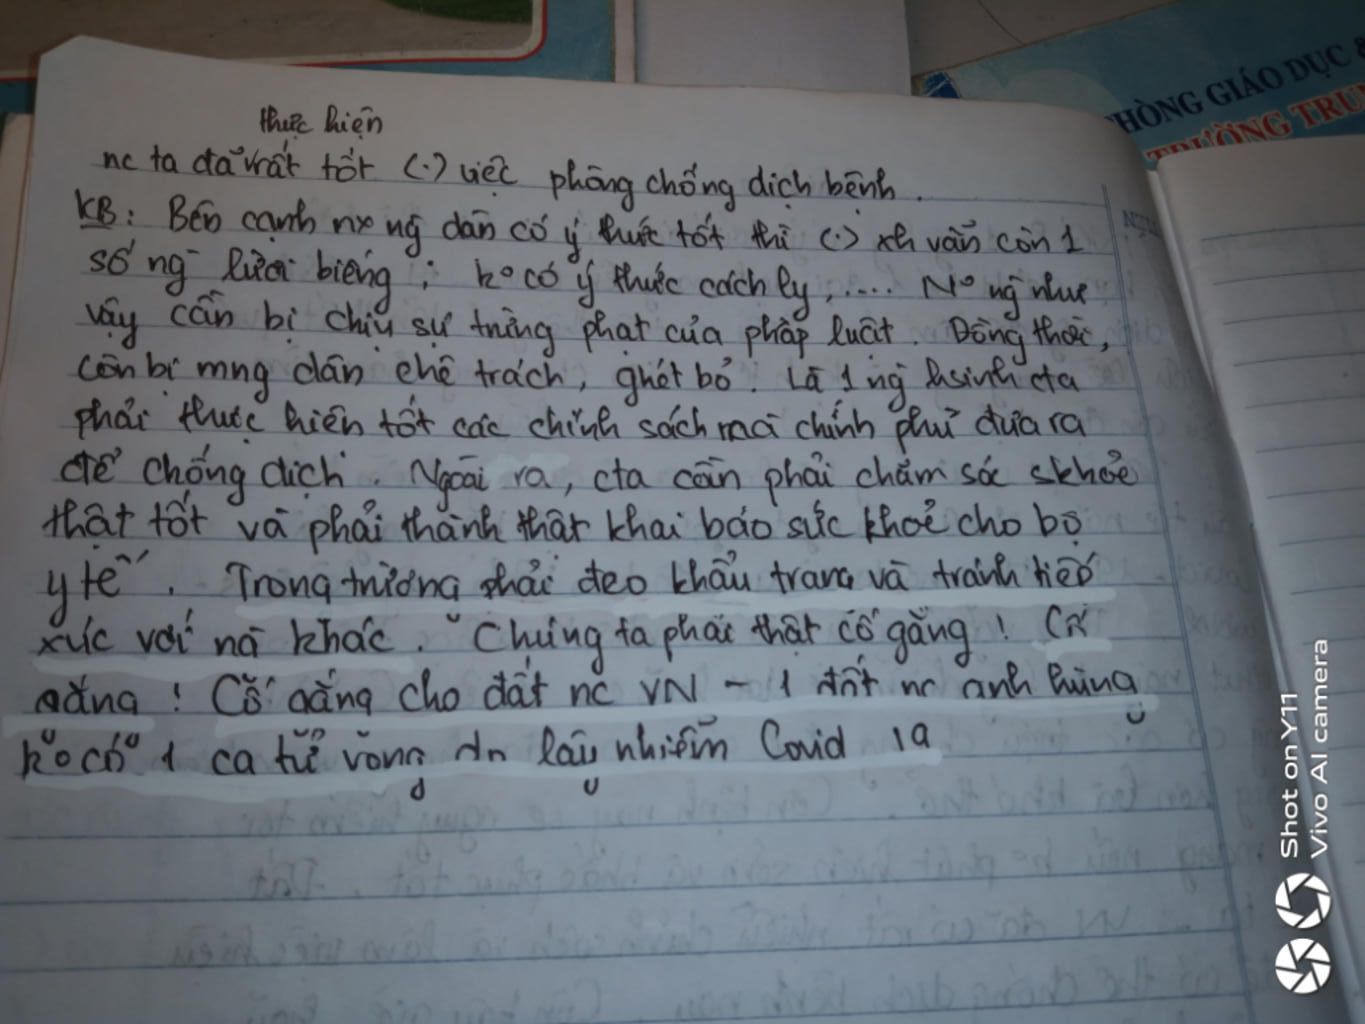 HÒNG GIÁO DỤC &
TRƯỜNG TRU
thực hiện
nc ta đã rất tốt (.) việc phòng chống dịch bệnh.
KB: Bên cạnh nx ng dân có ý thức tốt thì (.) xh vẫn còn 1
số ng lười biếng; ko có ý thức cách ly,.... No ng như
vậy cần bị chịu sự trừng phạt của pháp luật. Đồng thời,
còn bị mng dân chê trách, ghét bỏ. Là 1 ng hsinh cta
phải thực hiện tốt các chính sách mà chính phủ đưa ra
để chống dịch. Ngoài ra, cta cần phải chăm sóc skhoẻ
thật tốt và phải thành thật khai báo sức khoẻ cho bộ
y tế. Trong trường phải đeo khẩu trang và tránh tiếp
xúc với ng khác. "Chúng ta phải thật cố gắng! Cố
gắng! Cố gắng cho đất nc VN - 1 đất nc anh hùng
ko có 1 ca tử vong do lây nhiễm Covid 19
Shot on Y11
Vivo AI camera